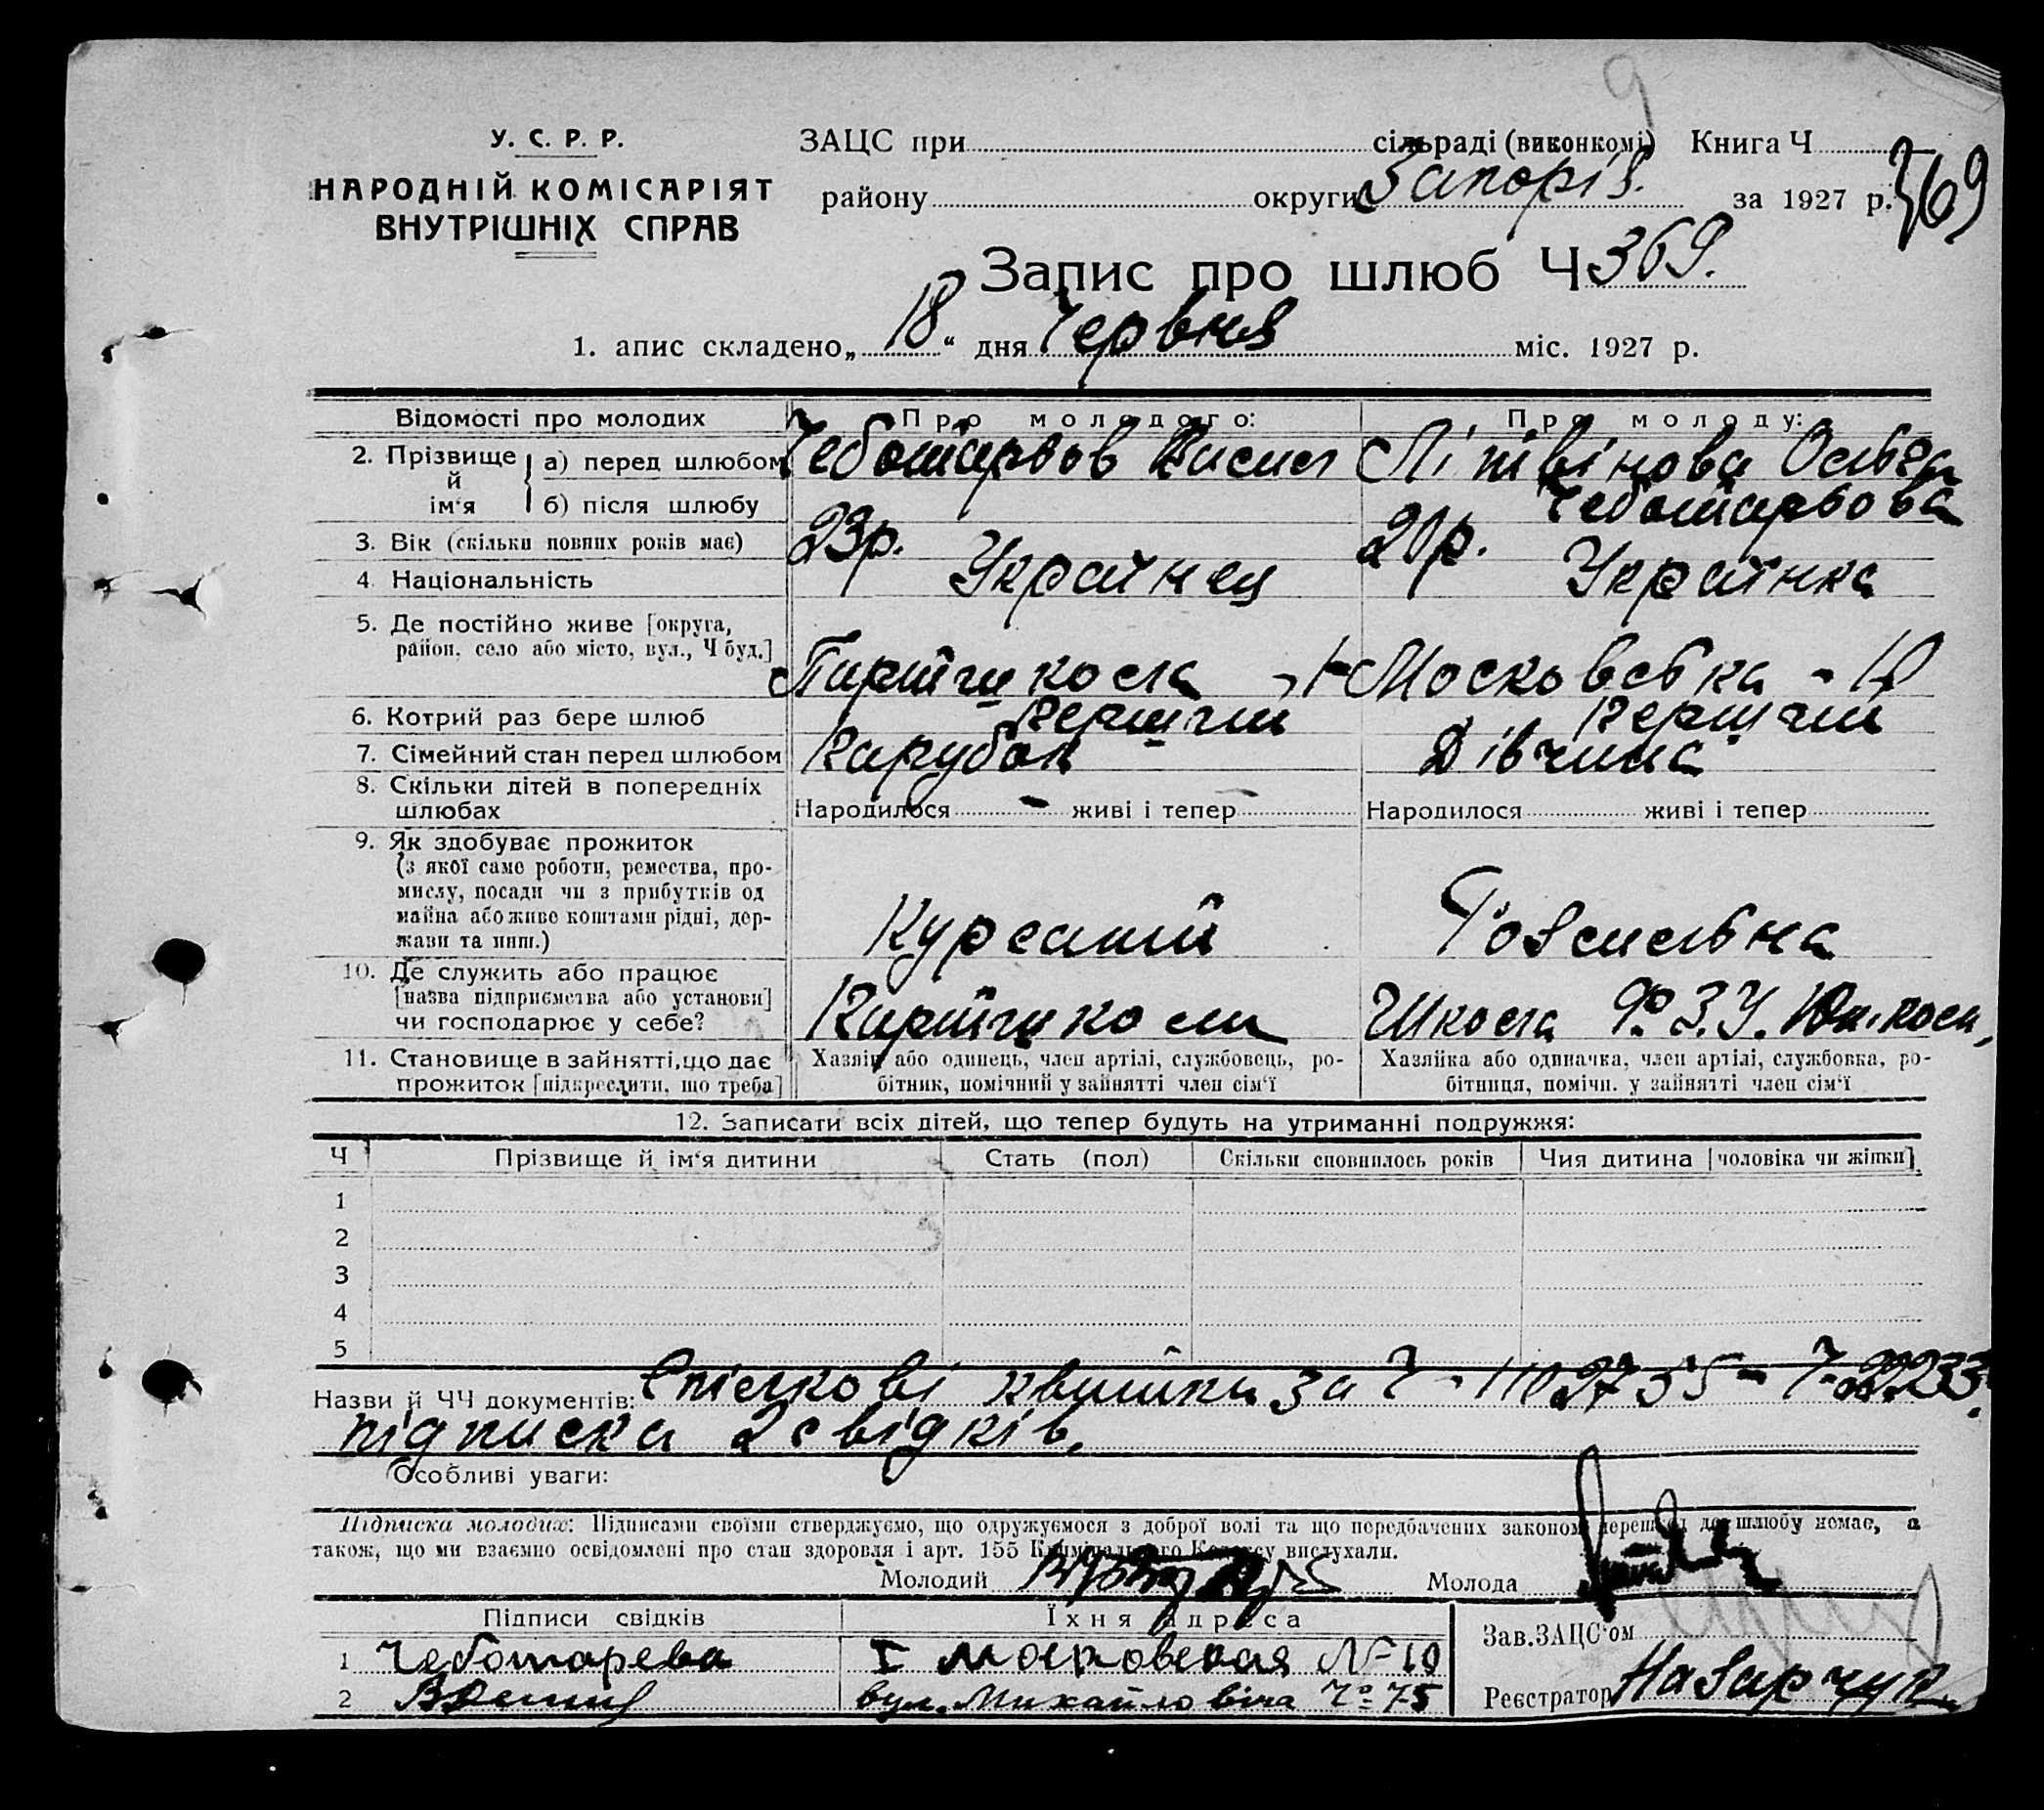 9
У. С. Р. Р.
НАРОДНІЙ КОМІСАРІЯТ
ВНУТРІШНІХ СПРАВ
ЗАЦС при сільраді (виконкомі) Книга Ч
району округи Запоріз. за 1927 р. 369
Запис про шлюб Ч 369.
1. апис складено „18“ дня Червня міс. 1927 р.
Відомості про молодих Про молодого: Про молоду:
2. Прізвище й ім‘я
а) перед шлюбом Чеботарьов Літвінова Ольга
б) після шлюбу Чеботарьова
3. Вік (скільки повних років має) 23р. 20р.
4. Національність Українец Українка
5. Де постійно живе [округа,
район, село або місто, вул., Ч буд.] Партшкола Московська - 10
6. Котрий раз бере шлюб Перший Перший
7. Сімейний стан перед шлюбом Парубок Дівчина
8. Скільки дітей в попередніх
шлюбах Народилося - живі і тепер - Народилося живі і тепер
9. Як здобуває прожиток
(з якої саме роботи, ремества, про-
мислу, посади чи з прибутків од
майна або живе коштами рідні, дер-
жави та инш.) Курсант
10. Де служить або працює
[назва підприємства або установи]
чи господарює у себе? Партшкола Школа Ф.З.У.
11. Становище в зайнятті, що дає
прожиток [підкреслити, що треба]
Хазяїн або одинець, член артілі, службовець, ро-
бітник, помічний у зайнятті член сім‘ї
Хазяйка або одиначка, член артілі, службовка, ро-
бітниця, помічн. у зайнятті член сім‘ї
12. Записати всіх дітей, що тепер будуть на утриманні подружжя:
Ч Прізвище й ім‘я дитини Стать (пол) Скільки сповнилось років Чия дитина [чоловіка чи жінки]
1
2
3
4
5
Назви й ЧЧ документів: Спілкові квитки за Ч - 1102755 - Ч-22233.
підписка 2 свідків.
Особливі уваги:
Підписка молодих: Підписами своїми стверджуємо, що одружуємося з доброї волі та що передбачених законом перешкод до шлюбу немає, а
також, що ми взаємно освідомлені про стан здоровля і арт. 155 Кримінального Кодексу вислухали.
Молодий Молода
Підписи свідків Їхня адреса
1 Чеботарева I Московская № 10
2 вул. Михайловіча Ч० 75
Зав. ЗАЦС‘ом
Реєстратор Назарчук